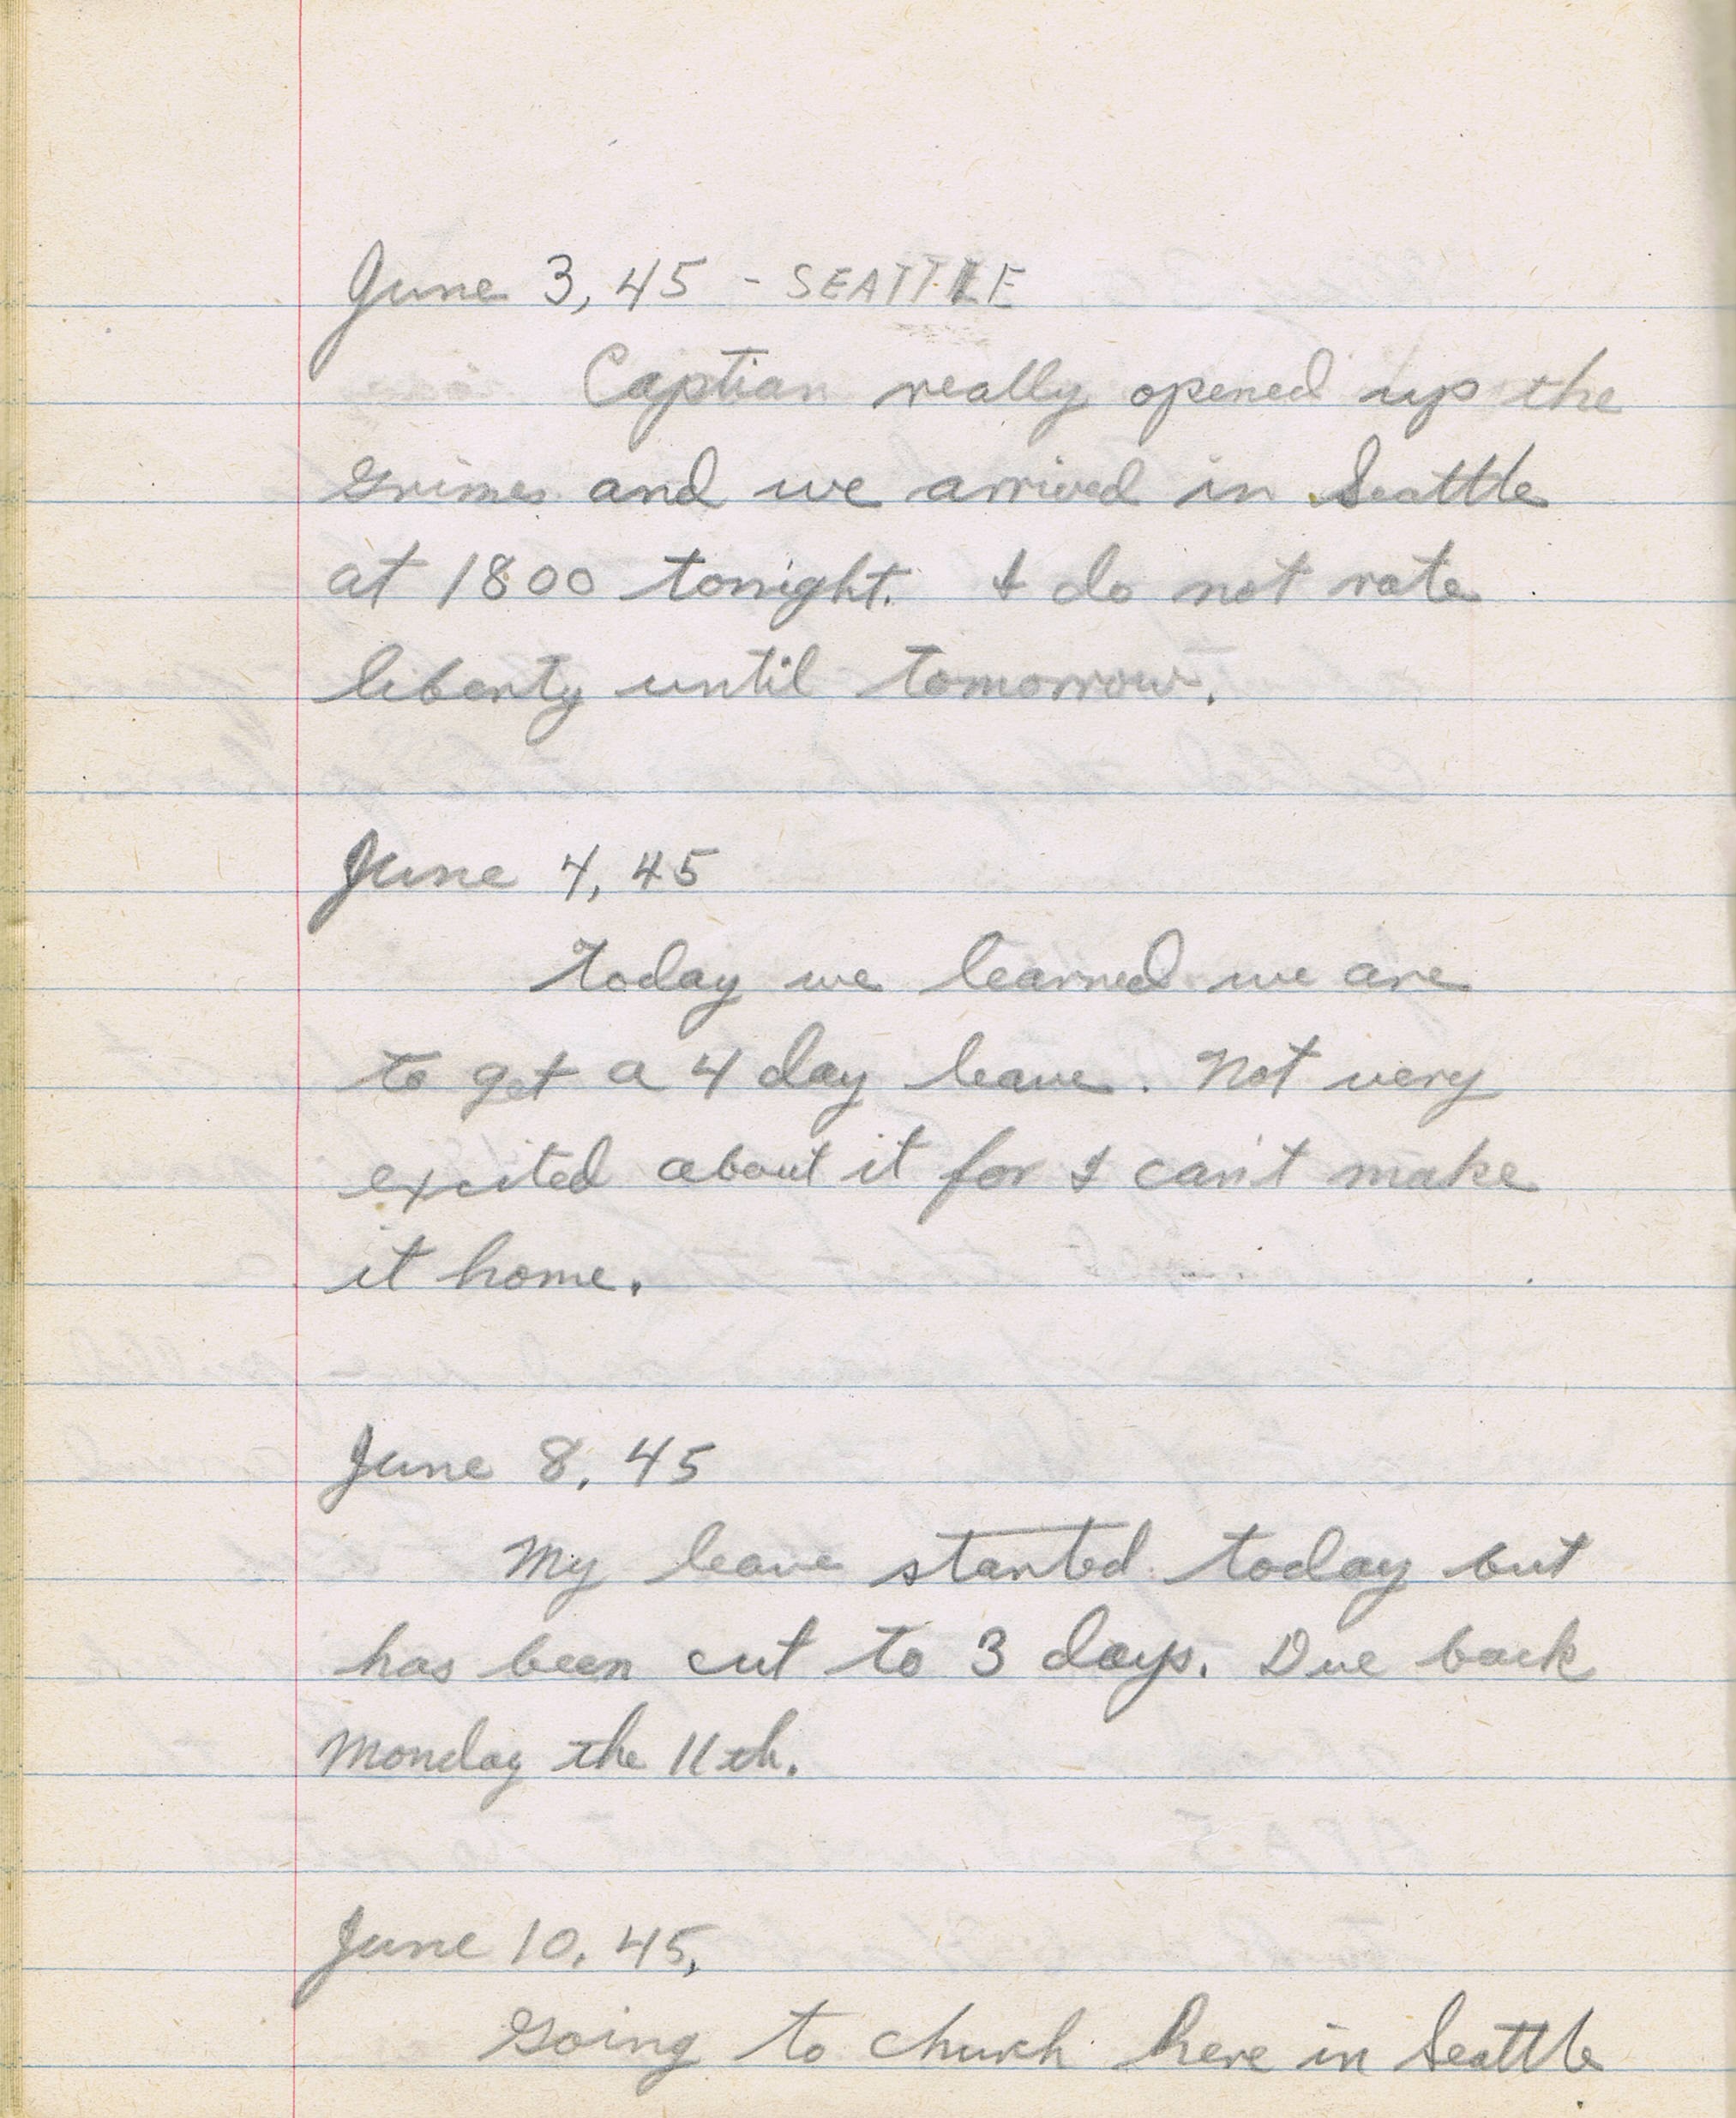 June 3, 45 - SEATTLE
Captian really opened up the
Grimes and we arrived in Seattle
at 1800 tonight. I do not rate
liberty until tomorrow.
June 4, 45
Today we learned we are
to get a 4 day leave. Not very
excited about it for I can't make
it home.
June 8, 45
My leave started today but
has been cut to 3 days. Due back
Monday the 11th.
June 10, 45,
Going to church here in Seattle